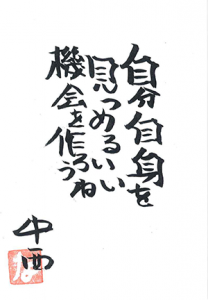 自分自身を
見つめるいい
機会を作ろうね
中西
な